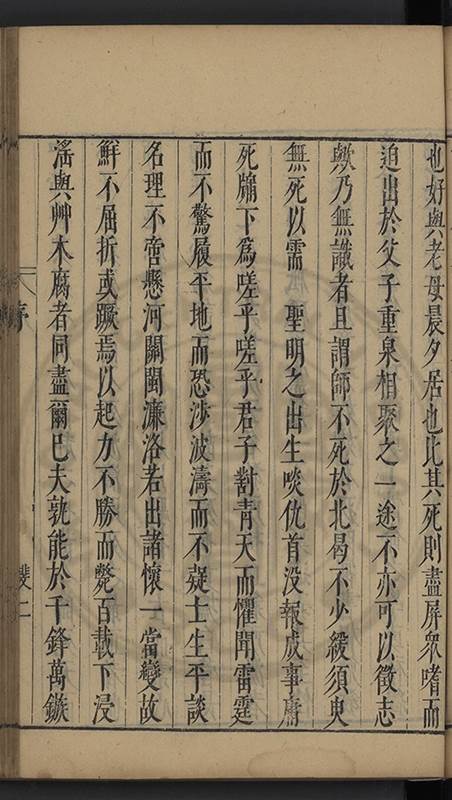 也好與老母晨夕居也比其死則盡屏眾嗜而
迫出於父子重泉相聚之一途不亦可以徵志
歟乃無識者且謂師不死於北曷不少緩須臾
無死以需 聖明之出生啖仇首没報成事庸
死牖下為嗟乎嗟乎君子對青天而懼聞雷霆
而不驚履平地而恐涉波濤而不疑士生平談
名理不啻懸河關閩濂洛若出諸懷一當變故
鮮不屈折或蹶焉以起力不勝而斃百載下浸
滛與艸木腐者同盡爾已夫孰能於千鋒萬鏃
序
二